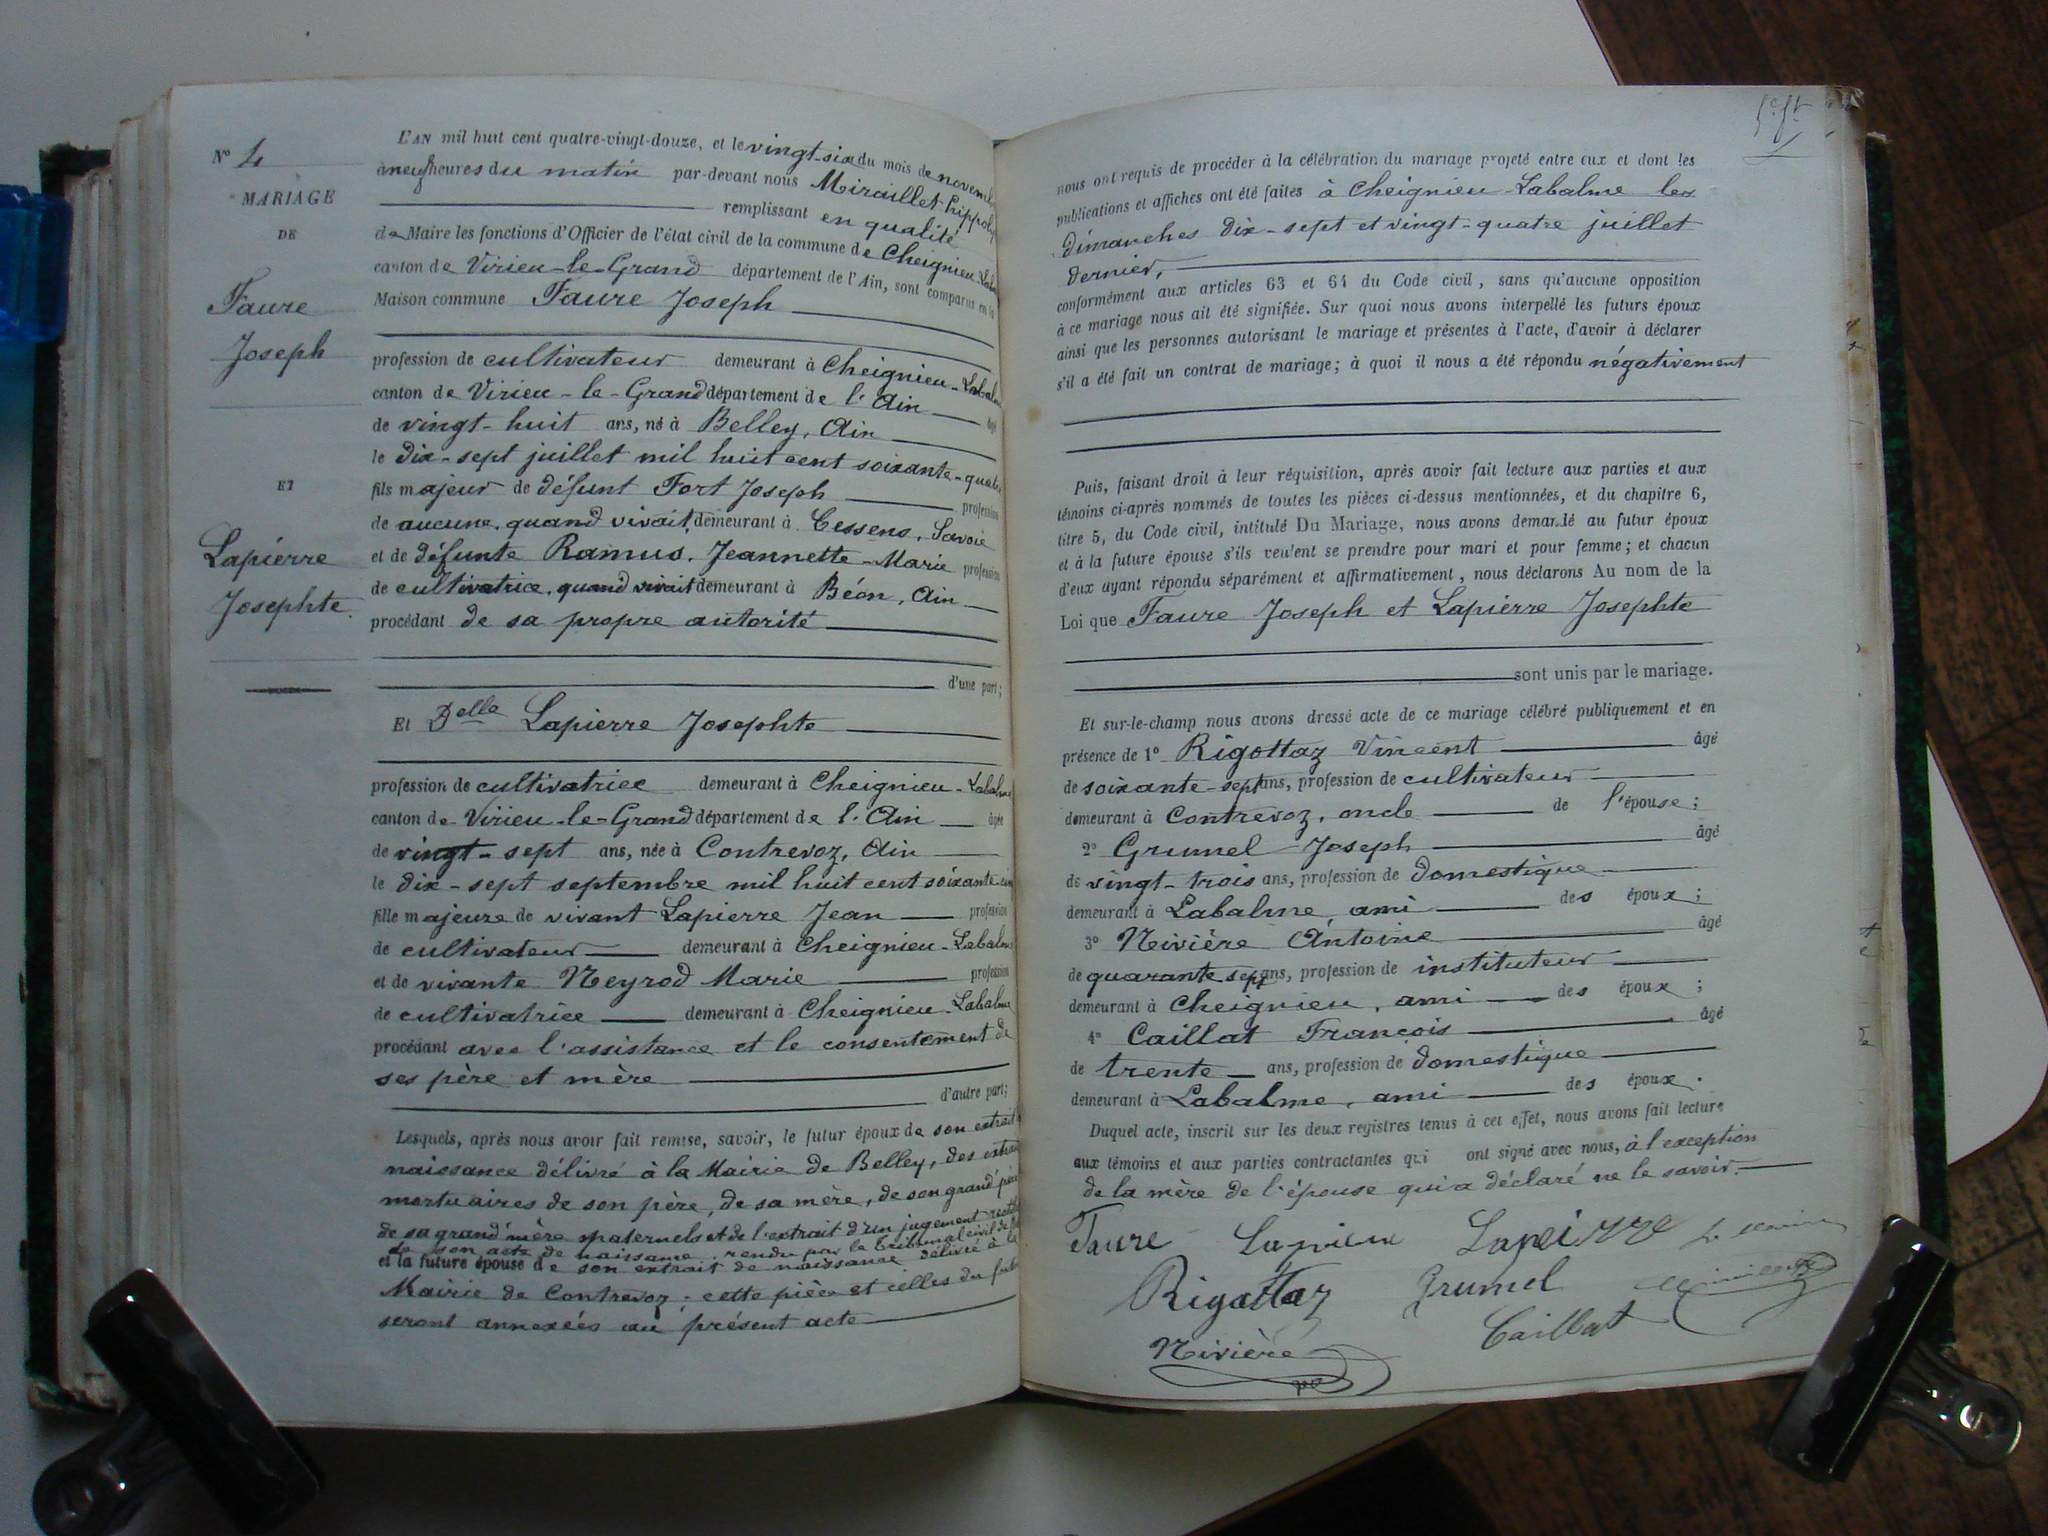 N° 4
MARIAGE
DE
Faure
Joseph
ET
Lapierre
Josephte.
L'AN mil huit cent quatre-vingt-douze, et le vingt-six du mois de novemb
à neuf heures du matin par-devant nous Miraillet hippoly
remplissant en qualité
de Maire les fonctions d'Officier de l'état civil de la commune de Cheignieu-Laba
canton de Virieu-le-Grand département de l'Ain, sont comparus en la
Maison commune Faure Joseph
profession de cultivateur demeurant à Cheignieu-Labalm
canton de Virieu-le-Grand département de l'Ain âgé
de vingt-huit ans, né à Belley, Ain
le dix-sept juillet mil huit cent soixante-quatre
fils majeur de défunt Fort Joseph profession
de aucune, quand vivait, demeurant à Cessens, Savoie
et de défunte Ramus, Jeannette-Marie profession
de cultivatrice, quand vivait demeurant à Béon, Ain
procédant de sa propre autorité
d'une part;
Et Delle Lapierre Josephte
profession de cultivatrice demeurant à Cheignieu-Labalme
canton de Virieu-le-Grand département de l'Ain âgée
de vingt-sept ans, née à Contrevoz, Ain
le dix-sept septembre mil huit cent soixante-cinq
fille majeure de vivant Lapierre Jean profession
de cultivateur demeurant à Cheignieu-Labalm
et de vivante Neyrod Marie profession
de cultivatrice demeurant à Cheignieu-Labalme
procédant avec l'assistance et le consentement de
ses père et mère
d'autre part;
Lesquels, après nous avoir fait remise, savoir, le futur époux de son extrait d
naissance délivré à la Mairie de Belley, des extrai
mortuaires de son père, de sa mère, de son grand'père
de sa grand'mère maternels et de l'extrait d'un jugement rectif
de son acte de naissance, rendu par le tribunal civil de
et la future épouse de son extrait de naissance délivré à la
Mairie de Contrevoz ; cette pièce et celles du futur
seront annexées au présent acte
nous ont requis de procéder à la célébration du mariage projeté entre eux et dont les
publications et affiches ont été faites à Cheignieu-Labalme les
dimanches dix-sept et vingt-quatre juillet
dernier,
conformément aux articles 63 et 64 du Code civil, sans qu'aucune opposition
à ce mariage nous ait été signifiée. Sur quoi nous avons interpellé les futurs époux
ainsi que les personnes autorisant le mariage et présentes à l'acte, d'avoir à déclarer
s'il a été fait un contrat de mariage; à quoi il nous a été répondu négativement
Puis, faisant droit à leur réquisition, après avoir fait lecture aux parties et aux
témoins ci-après nommés de toutes les pièces ci-dessus mentionnées, et du chapitre 6,
titre 5, du Code civil, intitulé Du Mariage, nous avons demandé au futur époux
et à la future épouse s'ils veulent se prendre pour mari et pour femme; et chacun
d'eux ayant répondu séparément et affirmativement, nous déclarons Au nom de la
Loi que Faure Joseph et Lapierre Josephte
sont unis par le mariage.
Et sur-le-champ nous avons dressé acte de ce mariage célébré publiquement et en
présence de 1° Rigottaz Vincent âgé
de soixante-sept ans, profession de cultivateur
demeurant à Contrevoz, oncle de l'épouse;
2° Grumel Joseph âgé
de vingt-trois ans, profession de domestique
demeurant à Labalme, ami des époux;
3° Nivière Antoine âgé
de quarante sept ans, profession de instituteur
demeurant à Cheignieu, ami des époux;
4° Caillat François âgé
de trente ans, profession de domestique
demeurant à Labalme, ami des époux.
Duquel acte, inscrit sur les deux registres tenus à cet effet, nous avons fait lecture
aux témoins et aux parties contractantes qui ont signé avec nous, à l'exception
de la mère de l'épouse qui a déclaré ne le savoir.
Faure Lapierre Lapeirre Le Maire
Rigottaz Grumel
Nivière Caillat